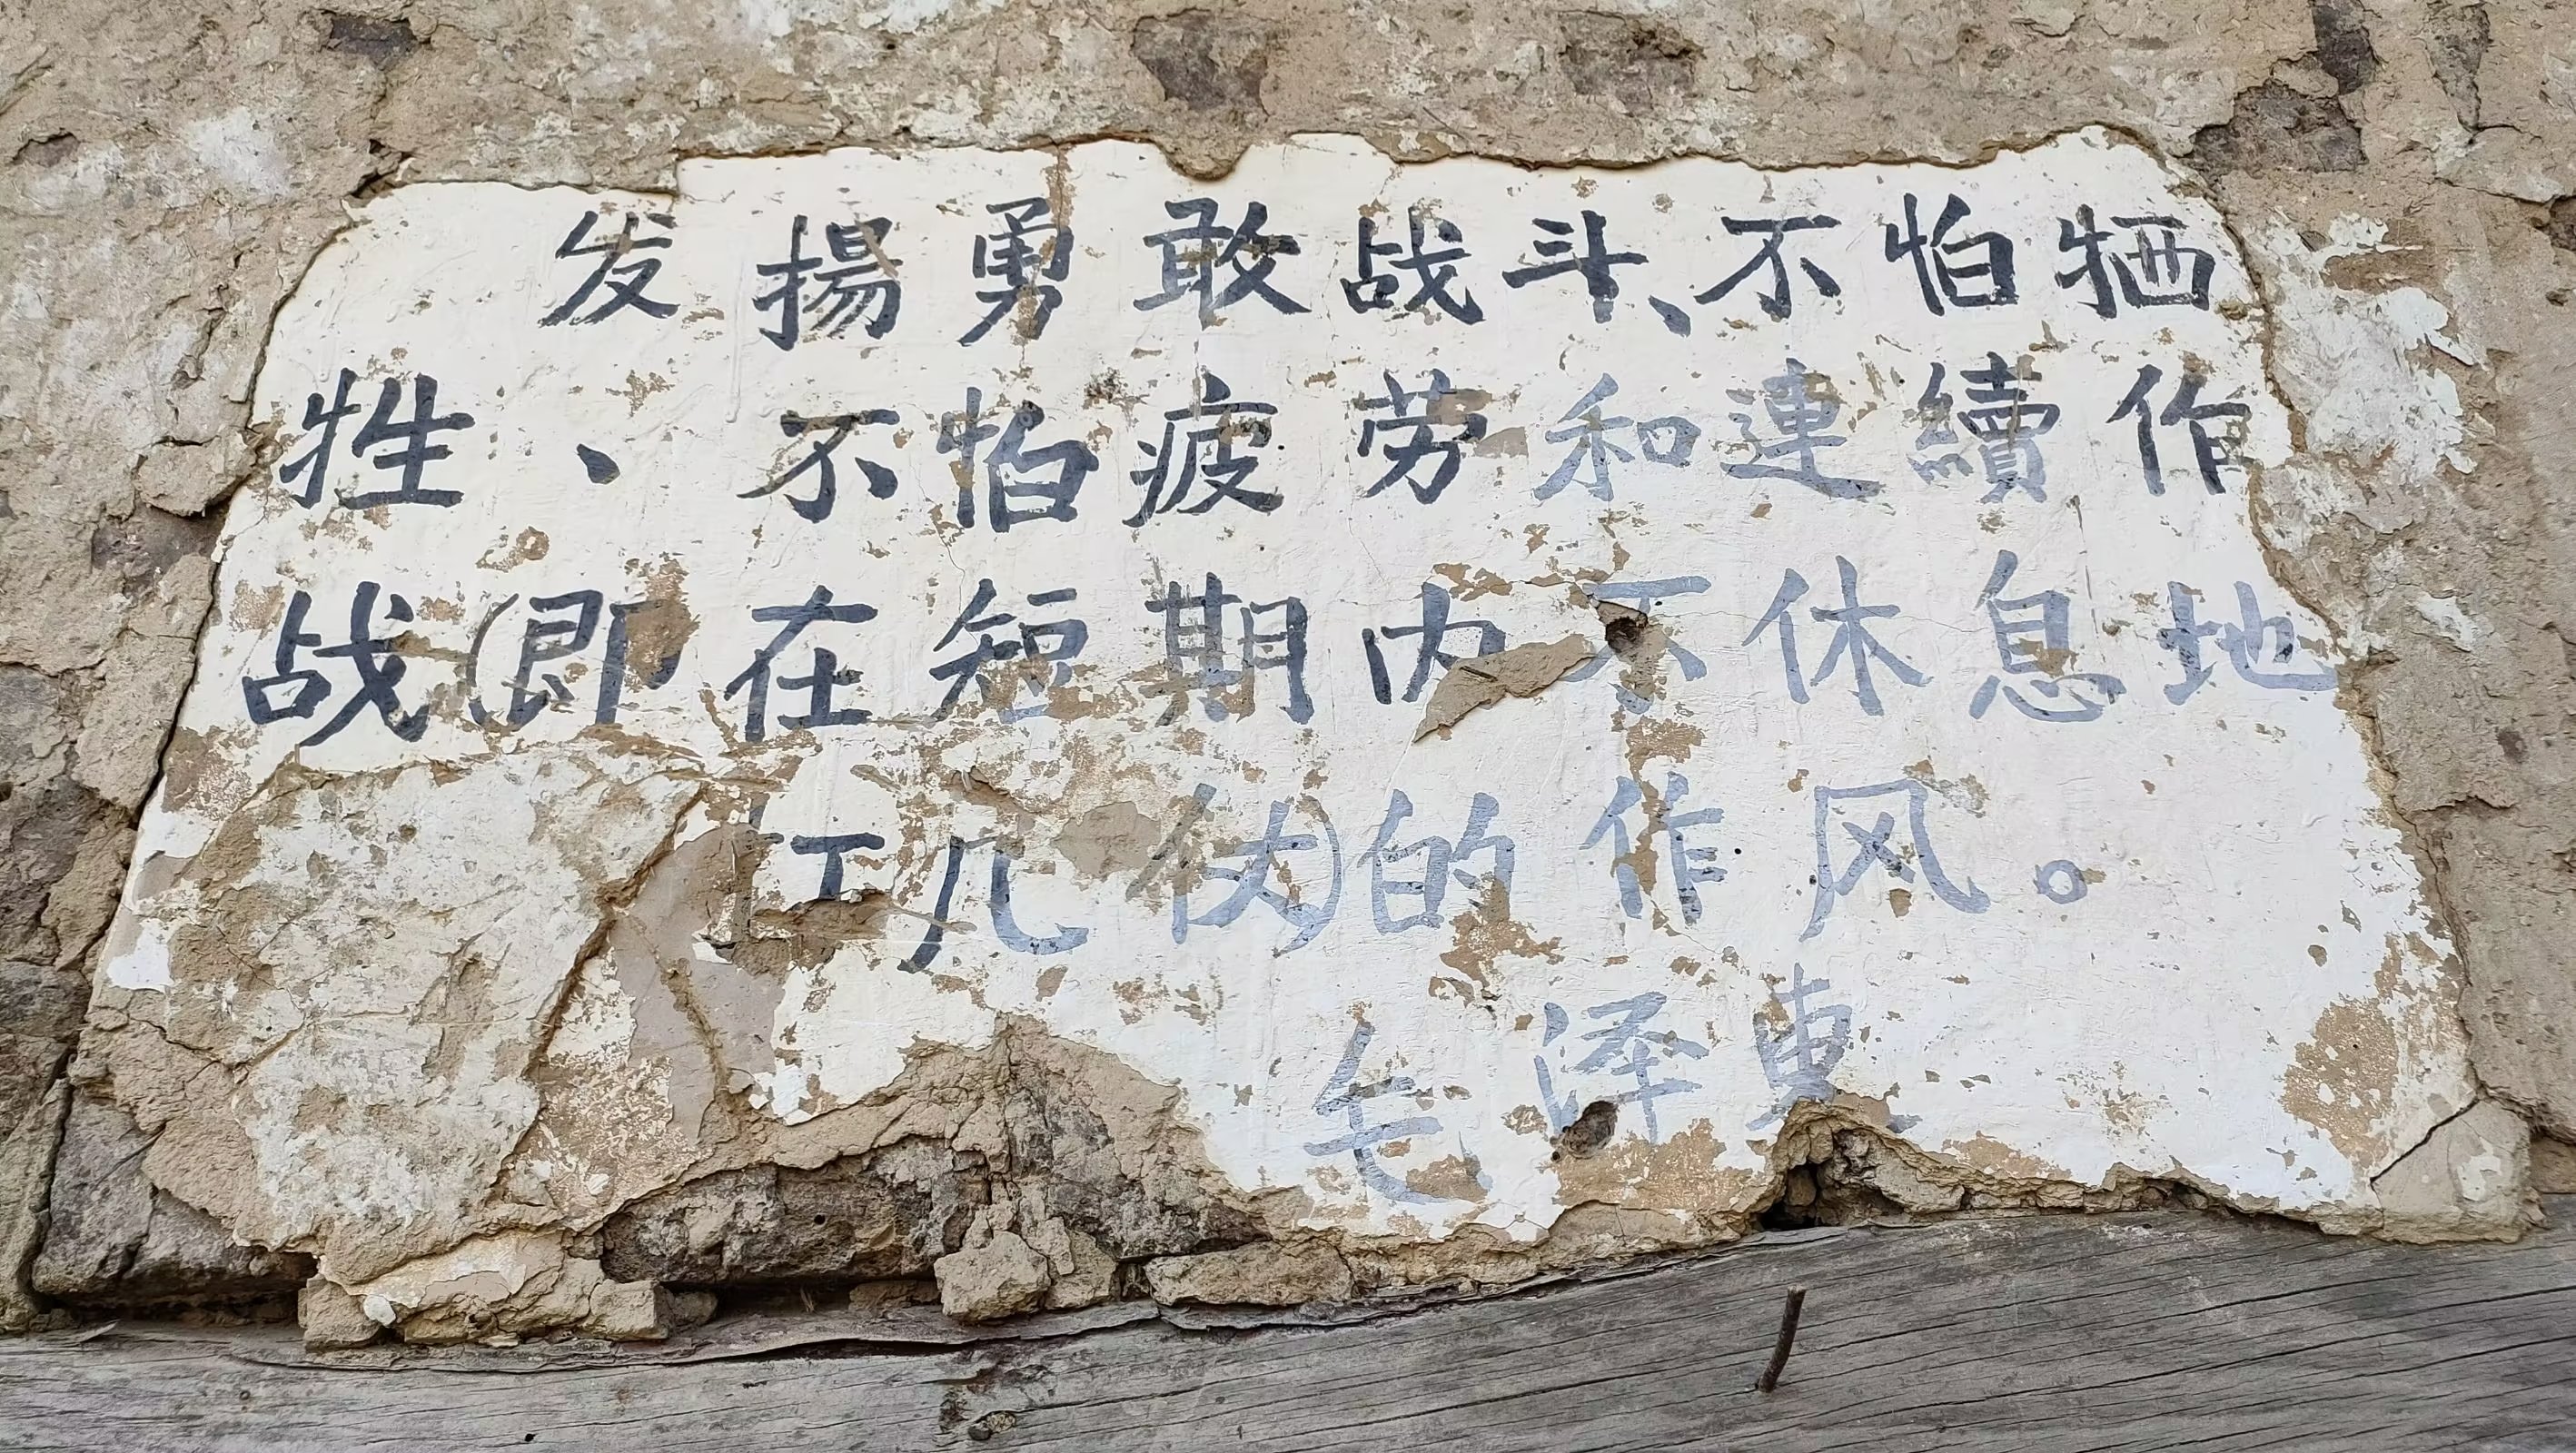 发揚勇敢战斗、不怕牺
牲、不怕疲劳和連續作
战(即在短期内不休息地
打几仗)的作风。
毛泽東